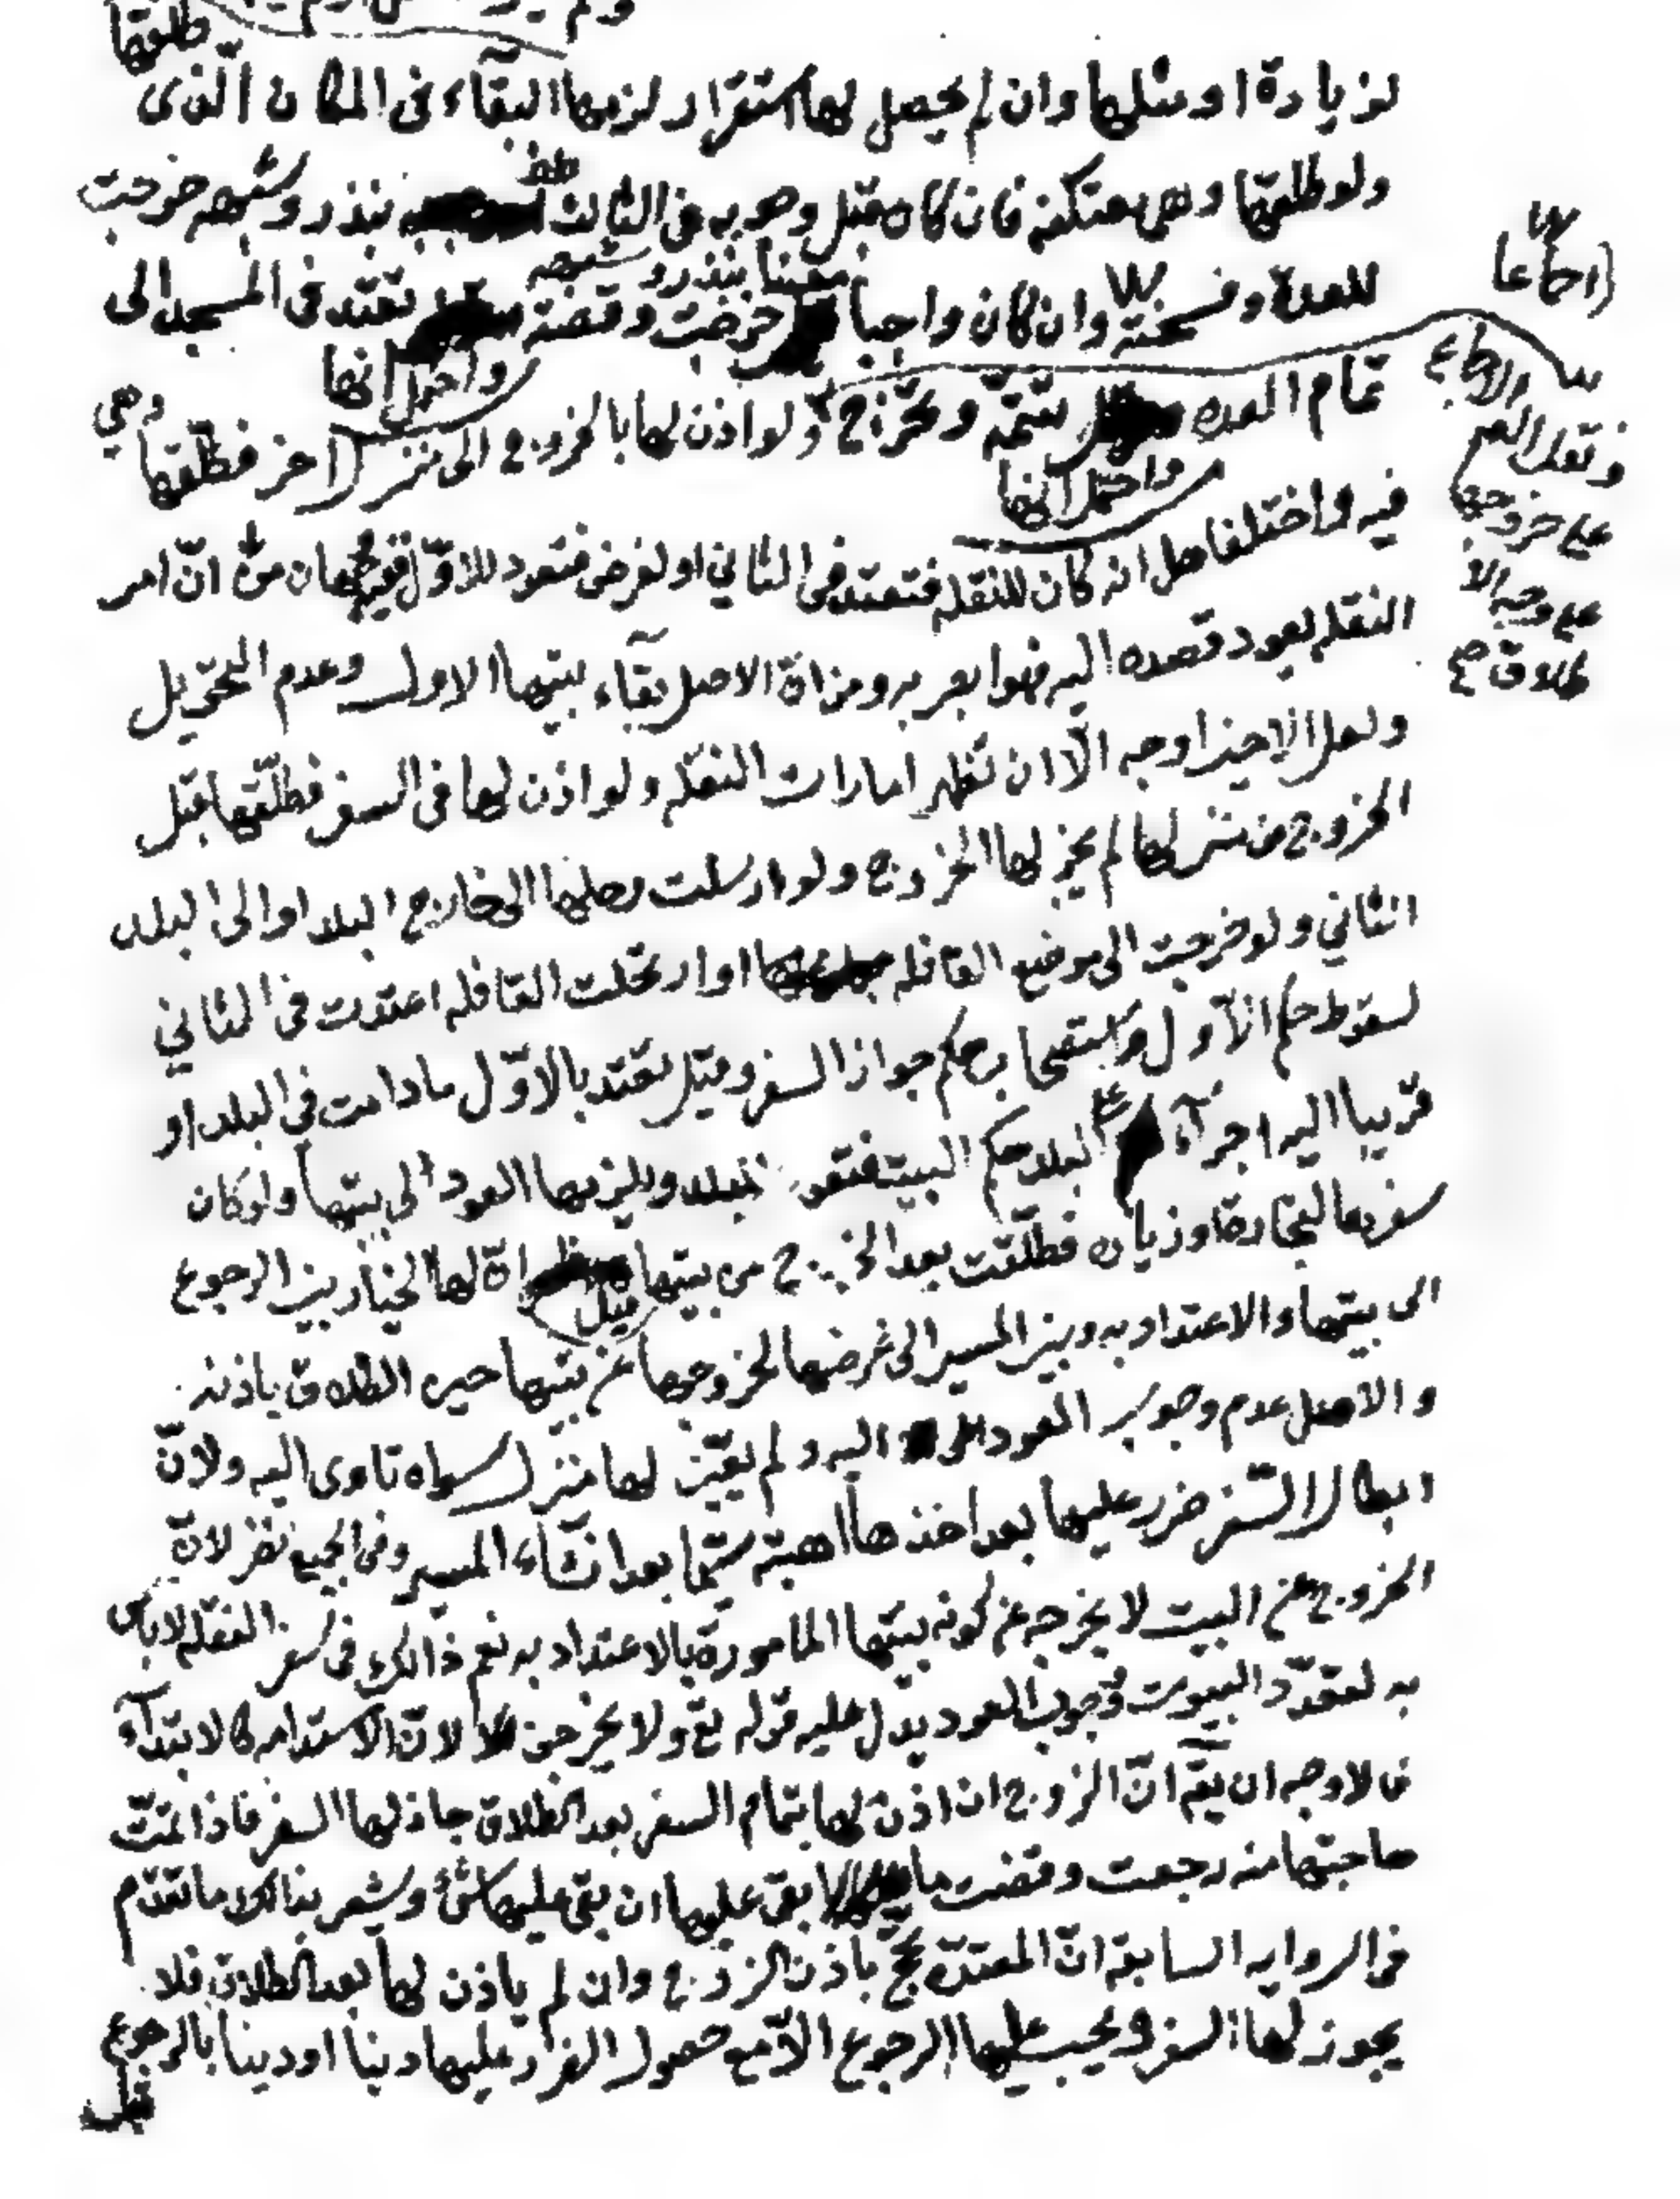 طلقها
لزيارة او مثلها وان لم يحصل لها استقرار لزمها البقاء فى المكان الذى
ولو طلقها وهى معتكفه فان كان قبل وجوبه فى الثالث بنذر وشبهه خرجت
للعدة وفسخته وان كان واجبا معينا بنذر وشبهه خرجت وقضته تعتد فى المسجد الى
واحتمل انها
تمام العده تتمّه وتخرج ولو اذن لها بالخروج الى منزل اخر فطلّقها وهي
واحتمل انها
فيه واختلفا هل انه كان للنقله فتعتد فى الثاني او لغرض فتعود للاوّل ففيه وجهان من انّ امر
النقله يعود قصده اليه فهو ابصر به ومن انّ الاصل بقاء بيتها الاول وعدم التحويل
ولعل الاخير اوجه الّا ان تظهر امارات النقله ولو اذن لها فى السفر فطلّقها قبل
الخروج من منزلها لم يجز لها الخروج ولو ارسلت رحلها الى خارج البلد او الى البلد
الثاني ولو خرجت الى موضع القافله او ارتحلت القافله اعتدت فى الثاني
لسقوط حكم الاوّل واستصحابه حكم جواز السفر وقيل تعتد بالاوّل ما دامت فى البلد او
قريبا اليه اجرآء البلد حكم البيت فتعود للبلد ويلزمها العود الى بيتها ولو كان
سفرها لتجارة او زياره فطلّقت بعد الخروج من بيتها قيل انّ لها الخيار بين الرجوع
الى بيتها والاعتداد به وبين المسير الى غرضها لخروجها عن بيتها حين الطلاق باذنه
والاصل عدم وجوب العود اليه ولم يتعيّن لها منزل سواه تاوى اليه ولانّ
ابطال السّفر ضرر عليها بعد اخذها اهبته سيّما بعد انشاء المسير وفى الجميع نظر لانّ
الخروج عن البيت لا يخرجه عن كونه بيتها المامورة بالاعتداد به نعم ذالك فى سفر النقله لا باس
به لتعدّد البيوت ووجوب العود يدل عليه قوله تع ولا يخرجن لانّ الاستدامه كالابتدآء
فالاوجه ان يقٓ انّ الزوج ان اذن لها بتمام السفر بعد الطلاق جاز لها السفر فاذا تمّت
حاجتها منه رجعت وقضت ما بقى عليها ان بقى عليها شئ ويشعر بذالك ما تقدّم
فى الروايه السابقه انّ المعتدّة تحجّ باذن الزوج وان لم ياذن لها بعد الطلاق فلا
يجوز لها السفر ويجب عليها الرجوع الّا مع حصول الضرر عليها دنيا او دينا بالرجوع
اجماعا
والاجماع
ونقل
على خروجها
على وجه الا
طلاق صح